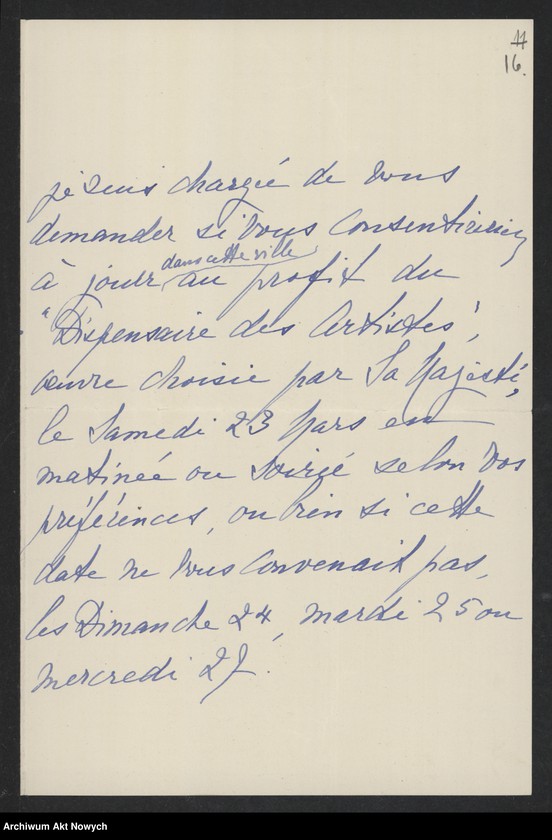 11
16.
je suis chargé de vous
demander si vous consentiriez
à jouer dans cette ville au profit du
"Dispensaire des Artistes",
œuvre choisie par Sa Majesté,
le Samedi 23 Mars en
matinée ou soirée selon vos
préférences, ou bien si cette
date ne vous convenait pas,
les Dimanche 24, mardi 25 ou
mercredi 27.
Archiwum Akt Nowych